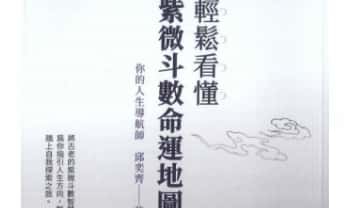 輕鬆看懂
紫微斗數命運地圖
你的人生導航師 邱奕齊
將古老的紫微斗數智
為你指引人生方向，
踏上自我探索之旅。